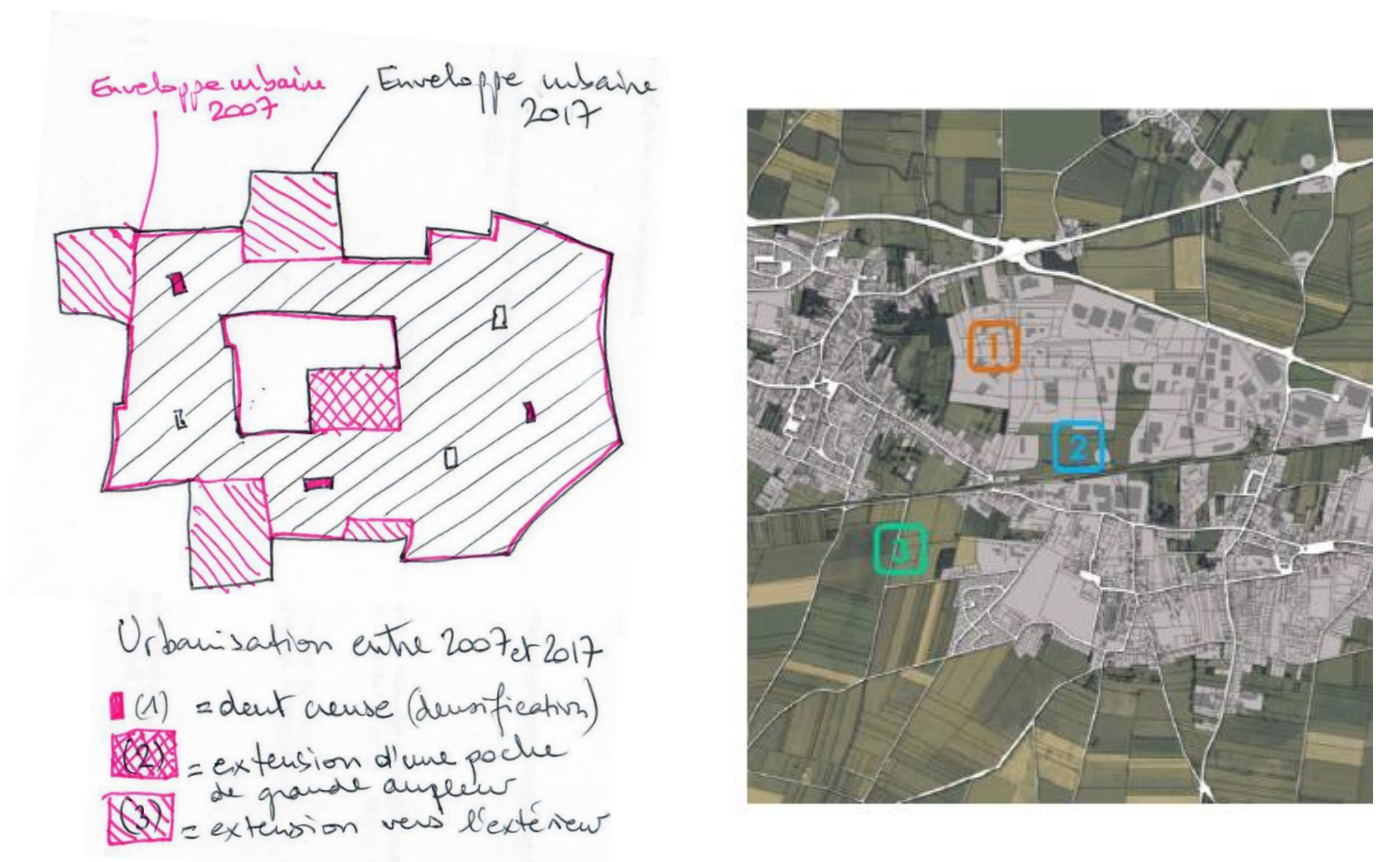 Enveloppe urbaine
2007
Enveloppe urbaine
2017
Urbanisation entre 2007 et 2017
(1) = dent creuse (densification)
(2) = extension d'une poche
de grande ampleur
(3) = extension vers l'extérieur
1
2
3